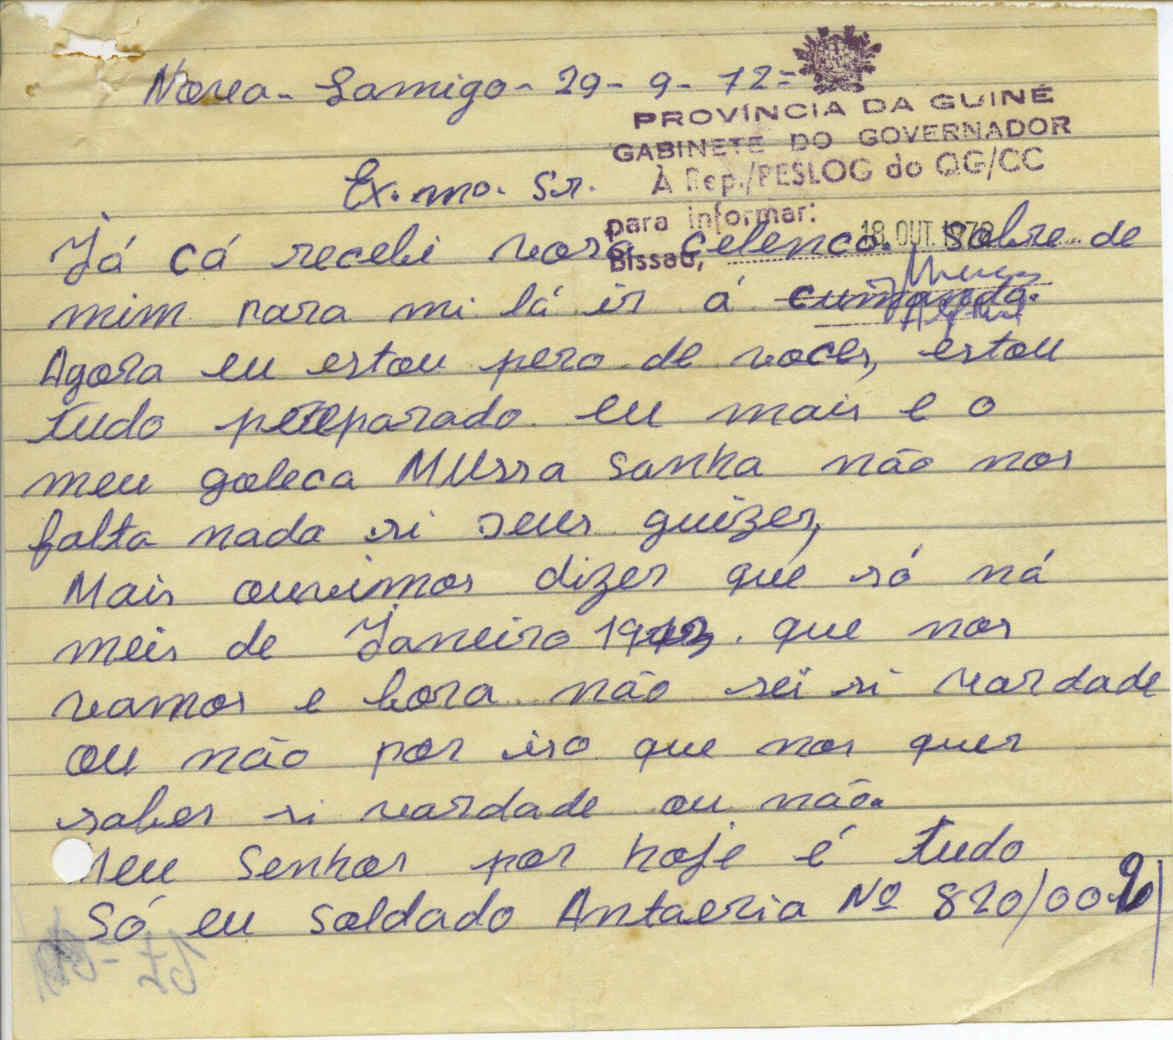 Nova-Lamigo-29-9-72=
PROVÍNCIA DA GUINÉ
GABINETE DO GOVERNADOR
À Rep./PESLOG do QG/CC
Ex.mo. Sr.
para informar:
Bissau, 18. OUT. 1972
Já cá recebi vosa celenca. sobre de
mim para mi lá ir á cumando.
Agora eu estou pero de voces, estou
tudo preparado eu mais e o
meu goleca Mussa Sanha não nos
falta nada si deus quizer,
Mais ouvimos dizer que só ná
meis de Janeiro 1973. que nos
vamos e bora não sei si vardade
ou não por iso que nos quer
saber si vardade ou não.
Meu Senhor por hoje é tudo
Só eu soldado Antaeria Nº 820/00